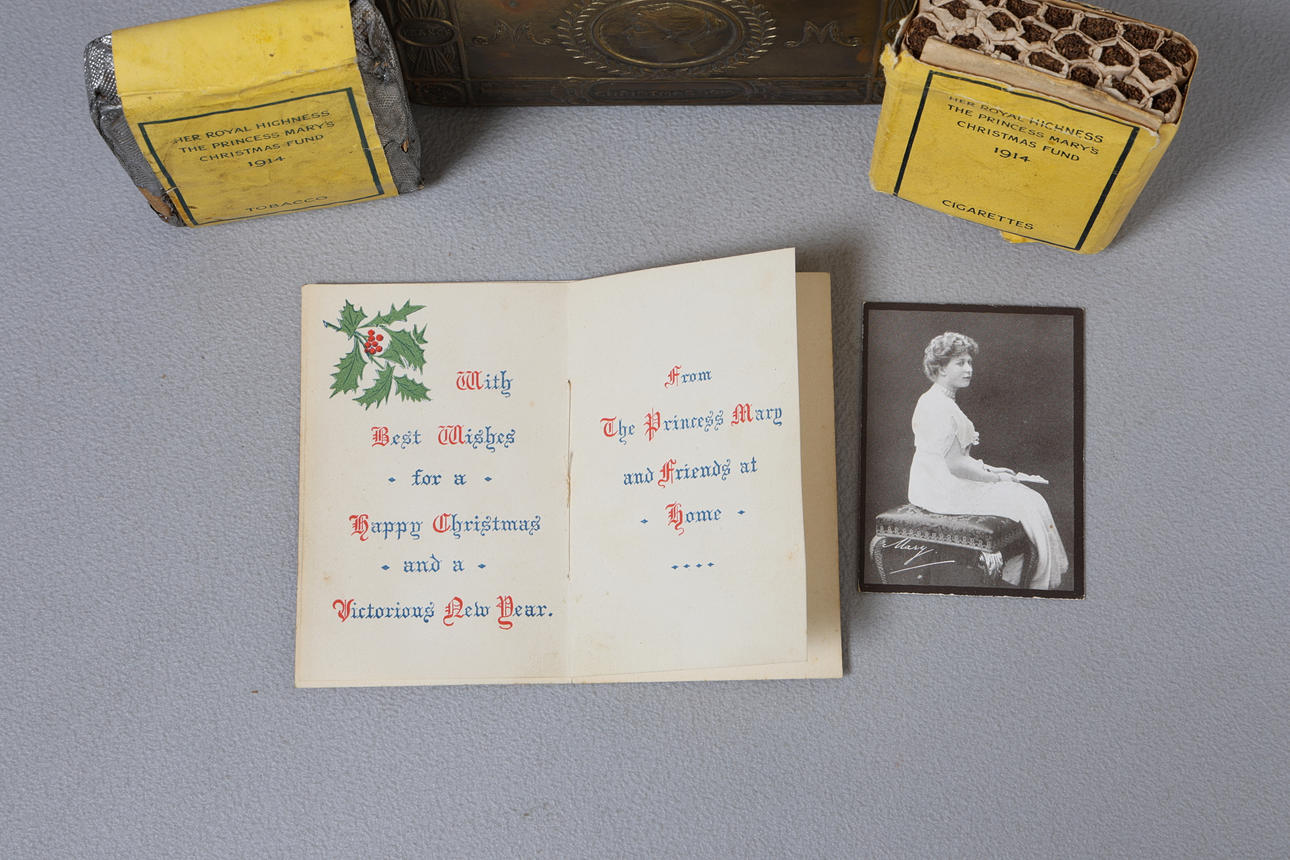 HER ROYAL HIGHNESS
THE PRINCESS MARY'S
CHRISTMAS FUND
1914
TOBACCO
M
HER ROYAL HIGHNESS
THE PRINCESS MARY'S
CHRISTMAS FUND
1914
CIGARETTES
With
Best Wishes
for a
Happy Christmas
and a
Victorious New Year.
From
The Princess Mary
and Friends at
Home
Mary